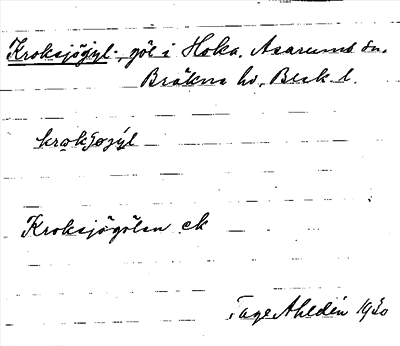 Kroksjögyl, göl i Hoka, Asarums sn,
Bräkne hd, Blek l.
krokʃøjyl
Kroksjögölen ek
Tage Ahldén 1930